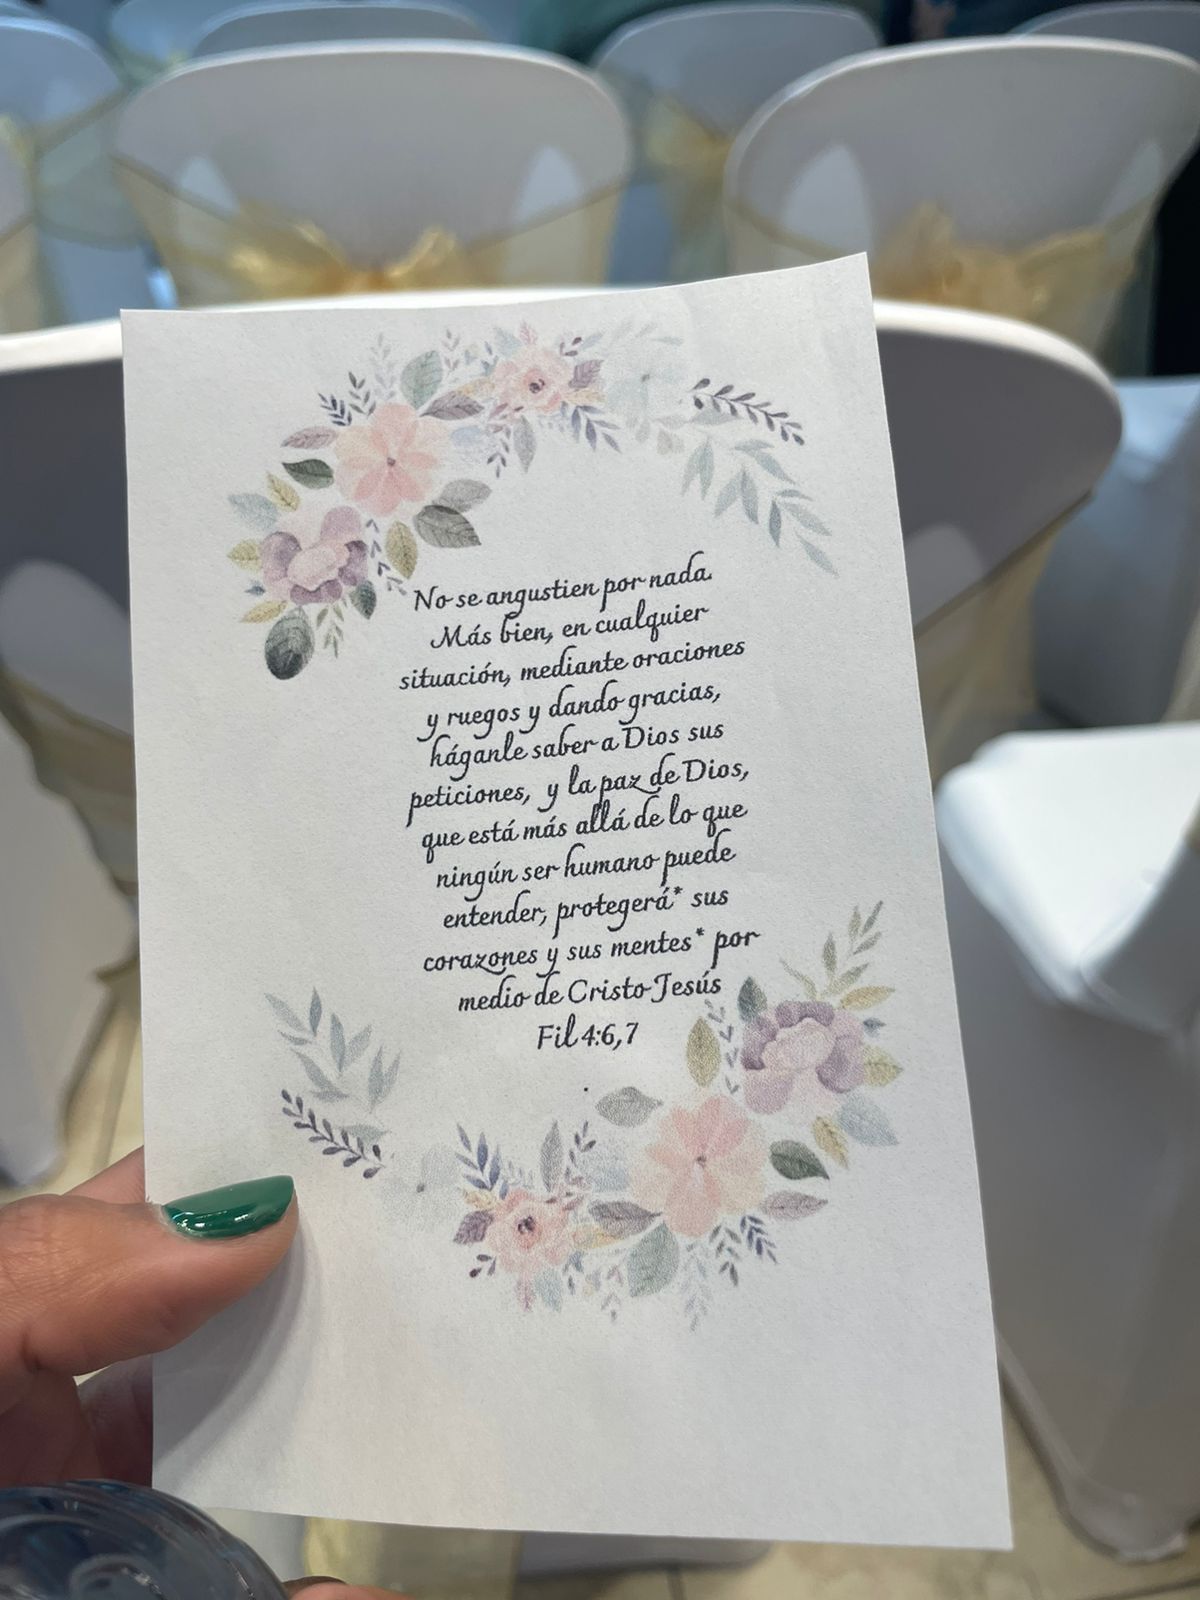 No se angustien por nada.
Más bien, en cualquier
situación, mediante oraciones
y ruegos y dando gracias,
háganle saber a Dios sus
peticiones, y la paz de Dios,
que está más allá de lo que
ningún ser humano puede
entender, protegerá* sus
corazones y sus mentes* por
medio de Cristo Jesús
Fil 4:6,7
.